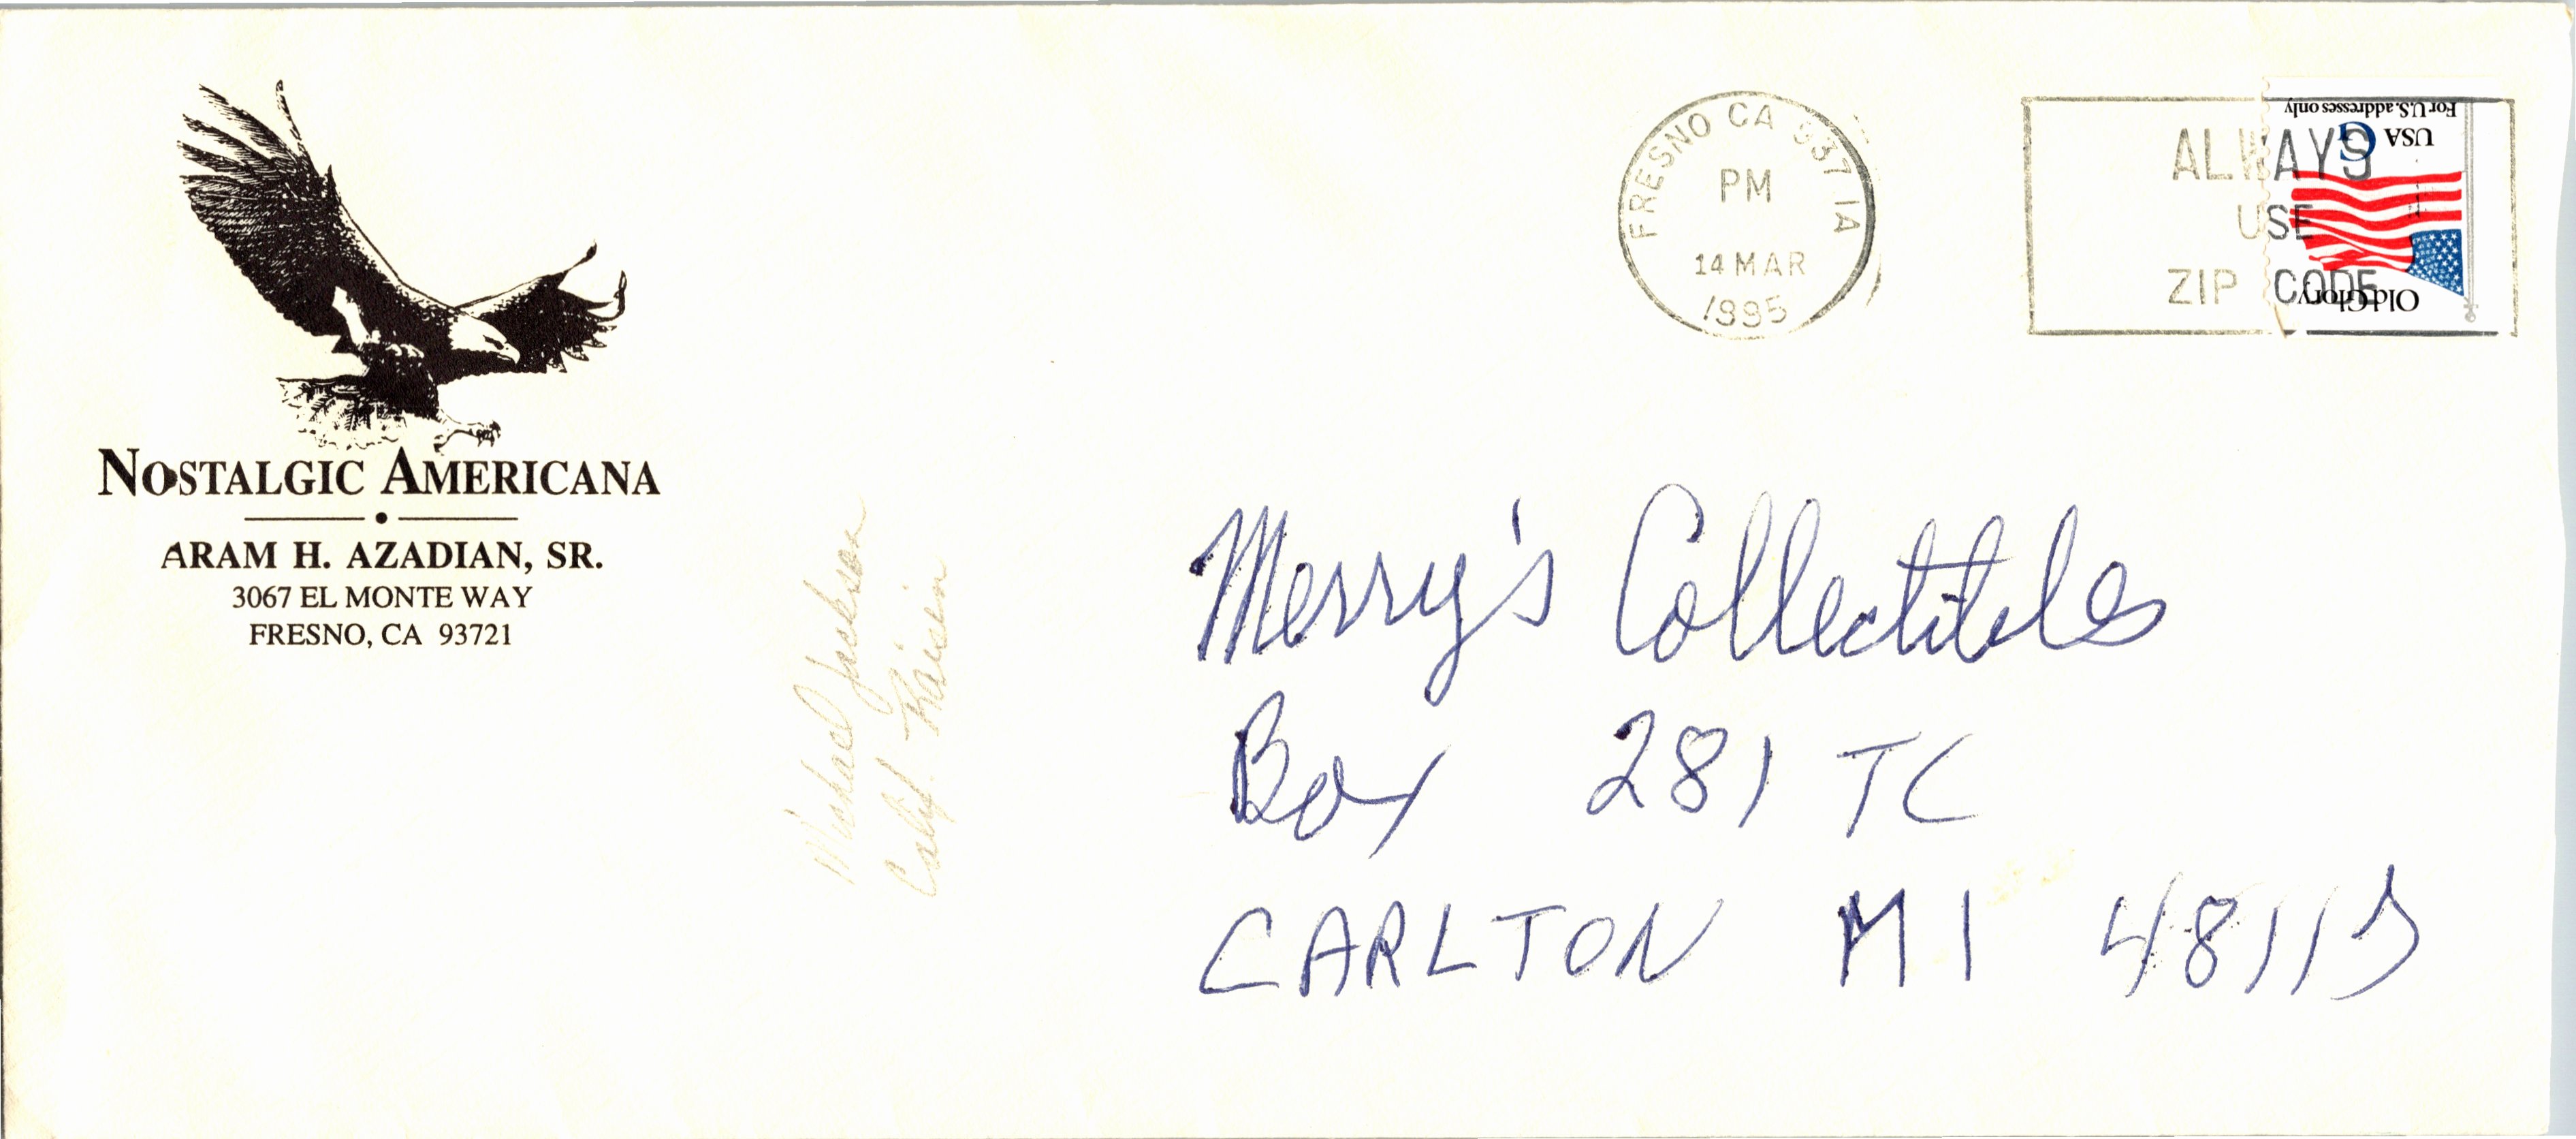 NOSTALGIC AMERICANA
ARAM H. AZADIAN, SR.
3067 EL MONTE WAY
FRESNO, CA 93721
FRESNO CA 937 1A
PM
14 MAR
1995
ALWAYS
USE
ZIP CODE
For U.S. addresses only
USA G
Old Glory
Michael Jackson
Calif. Raisin
Merry's Collectibles
Box 281 TC
CARLTON MI 48117